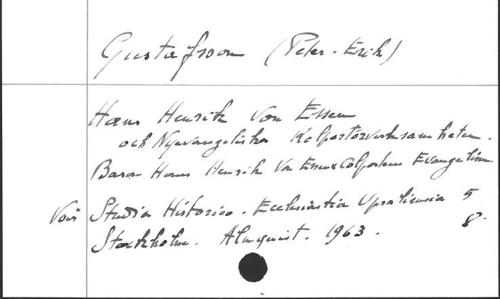 Gustafsson (Peter-Erik)
Hans Henrik Von Essen
och Nyevangeliska Kolportörverksamheten.
Baron Hans Henrik Von Essen & Colporteur Evangelism
Voir Studia Historico. Ecclesiastica Upsaliensia 5
Stockholm. Almquist. 1963. 8°